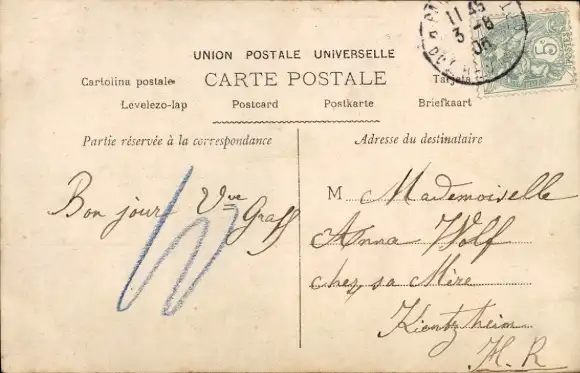 UNION POSTALE UNIVERSELLE
CARTE POSTALE
Cartolina postale
Tarjeta
Levelezo-lap Postcard Postkarte Briefkaart
Partie réservée à la correspondance
Adresse du destinataire
11 45
3 -8
06
5
Bon jour Vve Graff
M Mademoiselle
Anna Wolf
chez sa Mère
Kientzheim
H. R